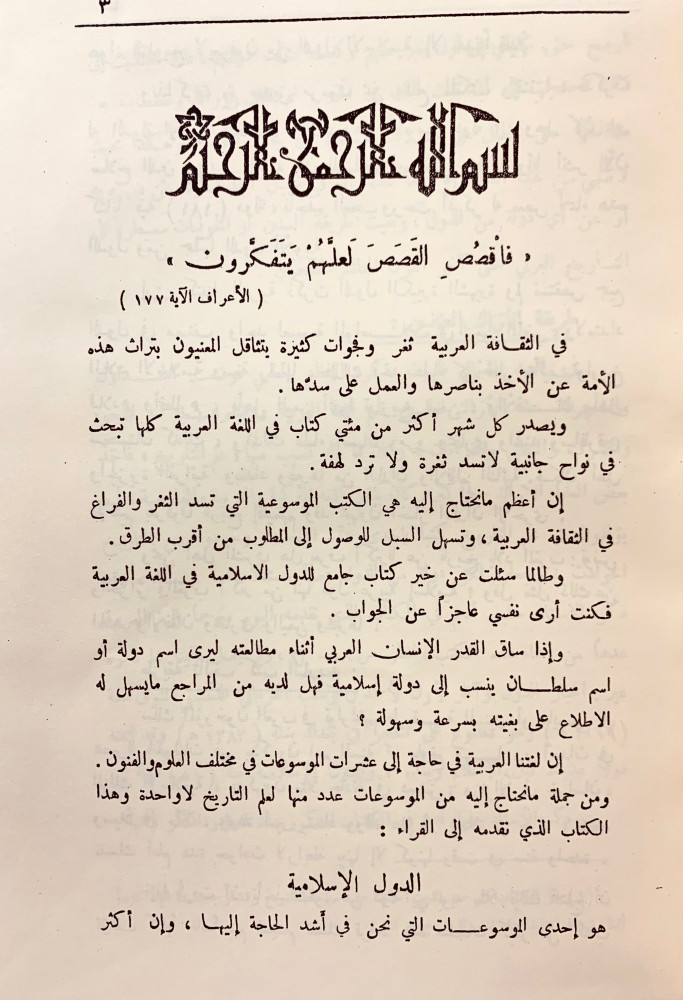 ٣
بسم الله الرحمن الرحيم
« فاْقصُصِ القَصَصَ لَعلَّهُمْ يَتَفَكَّرون »
( الأعراف الآية ١٧٧ )
في الثقافة العربية ثغر وفجوات كثيرة يتثاقل المعنيون بتراث هذه
الأمة عن الأخذ بناصرها والعمل على سدّها .
ويصدر كل شهر أكثر من مئتي كتاب في اللغة العربية كلها تبحث
في نواح جانبية لاتسد ثغرة ولا ترد لهفة .
إن أعظم مانحتاج إليه هي الكتب الموسوعية التي تسد الثغر والفراغ
في الثقافة العربية ، وتسهل السبل للوصول إلى المطلوب من أقرب الطرق .
وطالما سئلت عن خبر كتاب جامع للدول الاسلامية في اللغة العربية
فكنت أرى نفسي عاجزاً عن الجواب .
وإذا ساق القدر الإنسان العربي أثناء مطالعته ليرى اسم دولة أو
اسم سلطان ينسب إلى دولة إسلامية فهل لديه من المراجع مايسهل له
الاطلاع على بغيته بسرعة وسهولة ؟
إن لغتنا العربية في حاجة إلى عشرات الموسوعات في مختلف العلوم والفنون .
ومن جملة مانحتاج إليه من الموسوعات عدد منها لعلم التاريخ لاواحدة وهذا
الكتاب الذي نقدمه إلى القراء :
الدول الإسلامية
هو إحدى الموسوعات التي نحن في أشد الحاجة إليها ، وإن أكثر